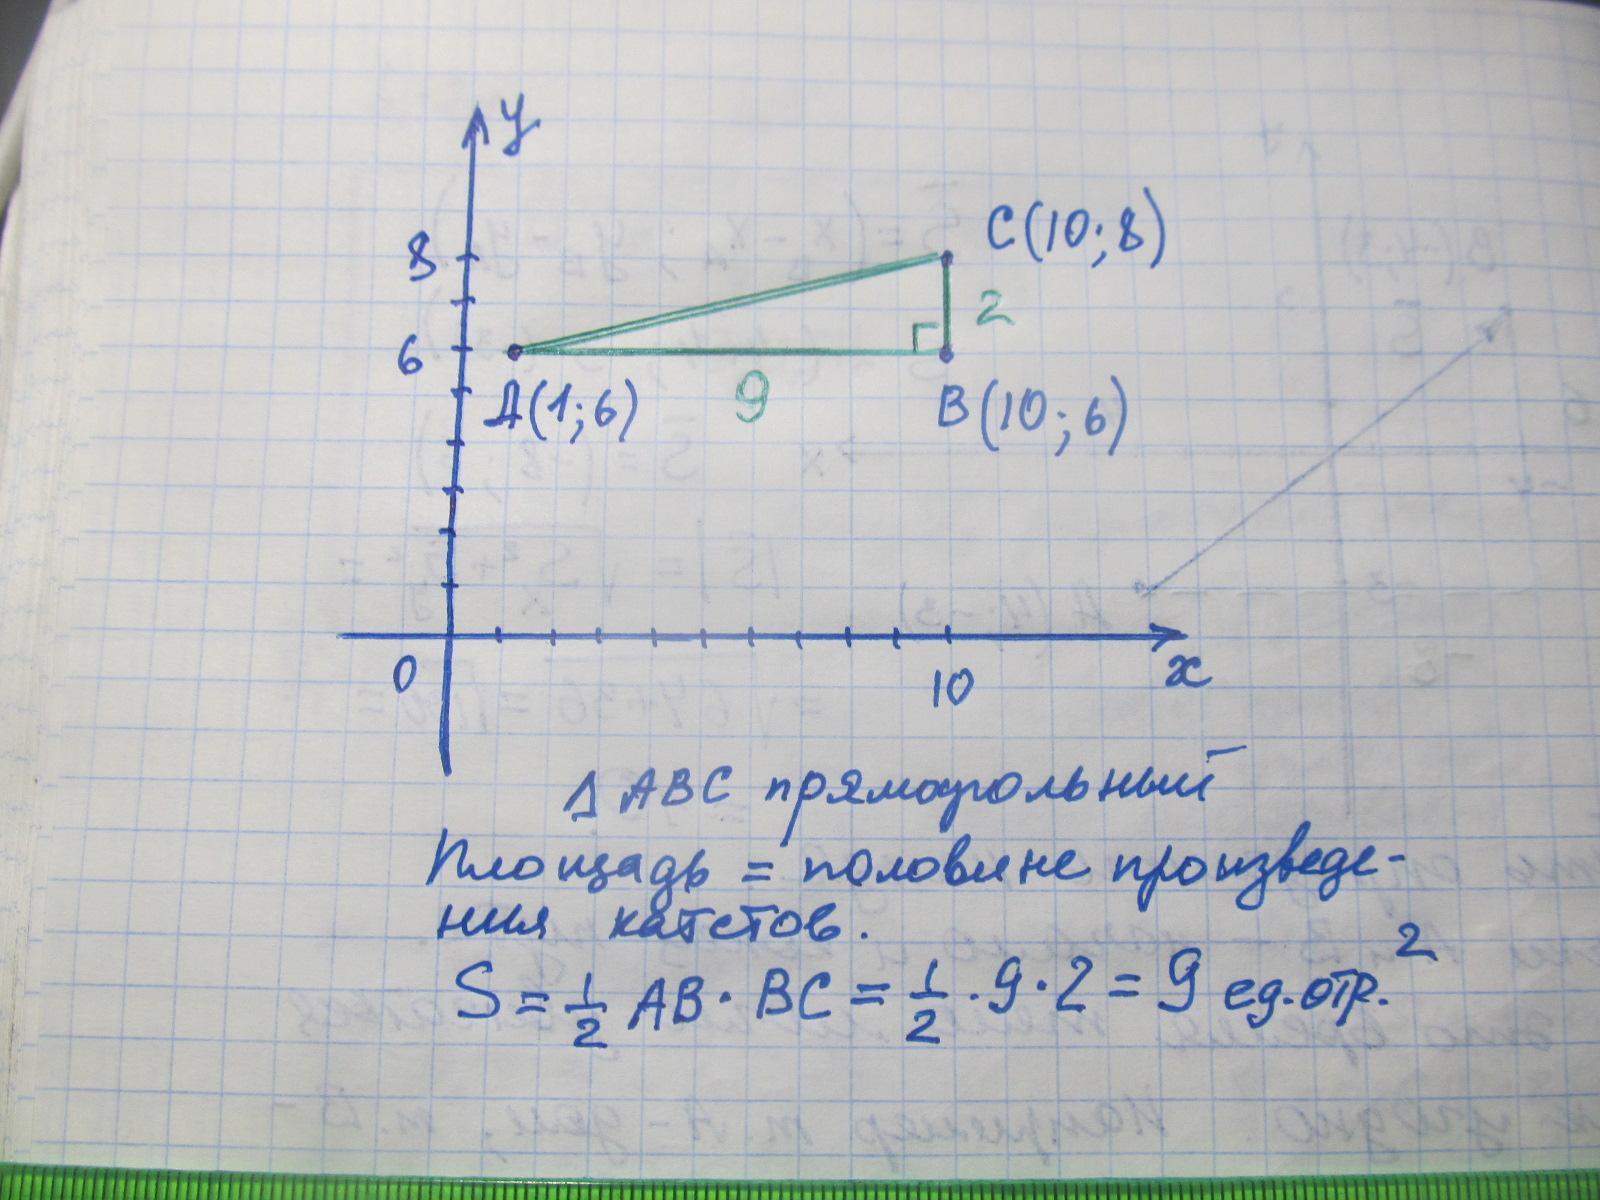 y
8
C(10;8)
2
6
A(1;6)
9
B(10;6)
0
10
x
Δ ABC прямоугольный
Площадь = половине произведе-
ния катетов.
S = 1/2 AB · BC = 1/2 · 9 · 2 = 9 ед.отр.²